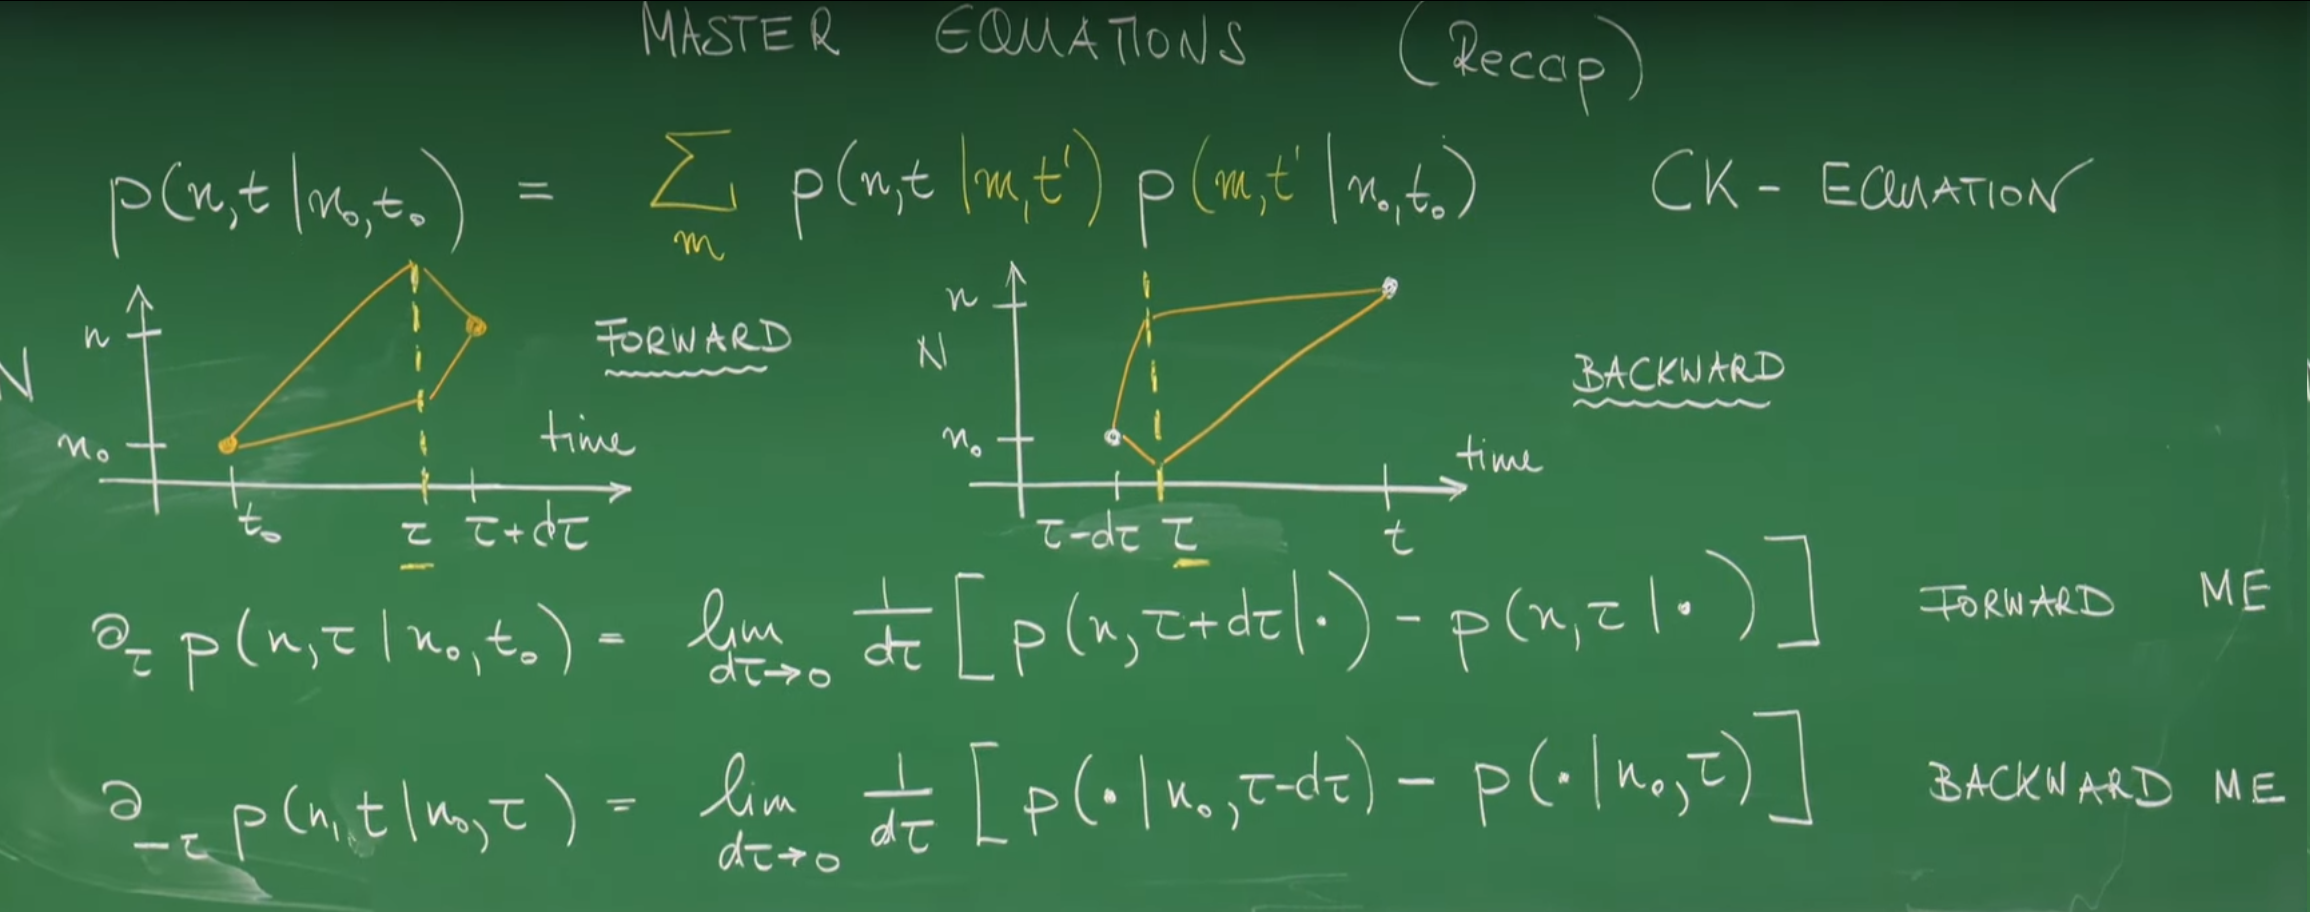 MASTER EQUATIONS (Recap)
p(n,t|n₀,t₀) = ∑ₘ p(n,t|m,t') p(m,t'|n₀,t₀) CK-EQUATION
n
N
n₀
t₀
τ
τ+dτ
time
FORWARD
n
N
n₀
τ-dτ
τ
t
time
BACKWARD
∂_τ p(n,τ|n₀,t₀) = lim_{dτ→0} 1/dτ [p(n,τ+dτ|·) - p(n,τ|·)] FORWARD ME
∂_{-τ} p(n,t|n₀,τ) = lim_{dτ→0} 1/dτ [p(·|n₀,τ-dτ) - p(·|n₀,τ)] BACKWARD ME